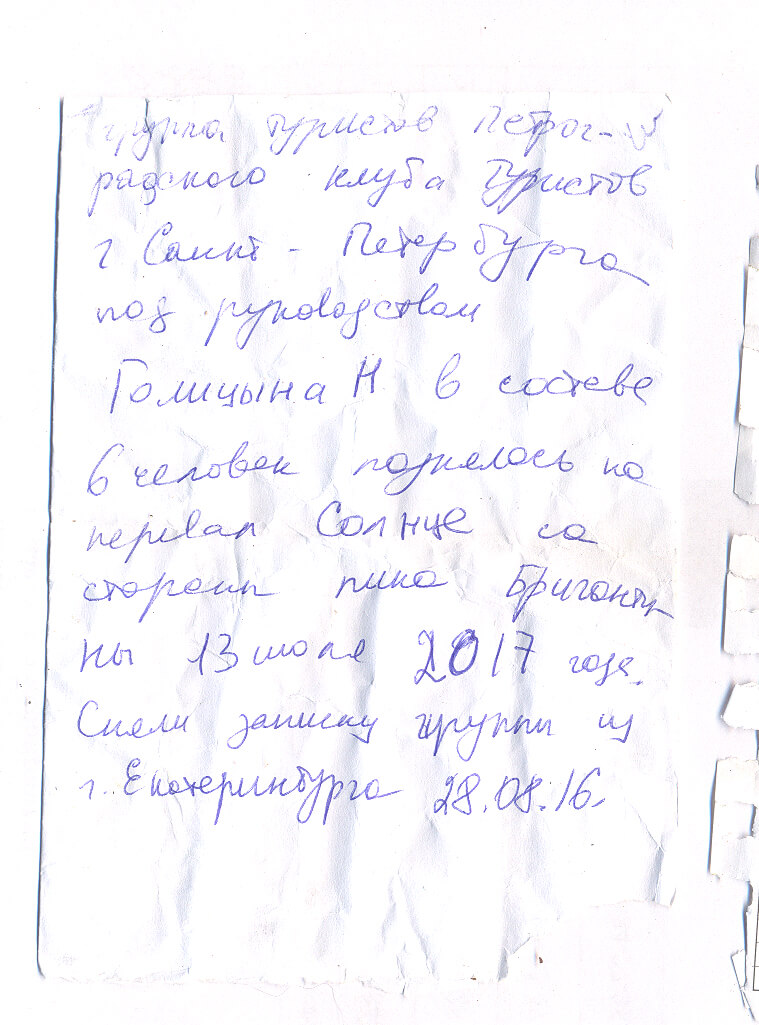 группа туристов Петрог-
радского клуба туристов
г Санкт - Петербурга
под руководством
Голицына Н в составе
6 человек поднялось на
перевал Солнце со
стороны пика Бриганти
ны 13 июля 2017 года.
Сняли записку группы из
г. Екатеринбурга 28.08.16.